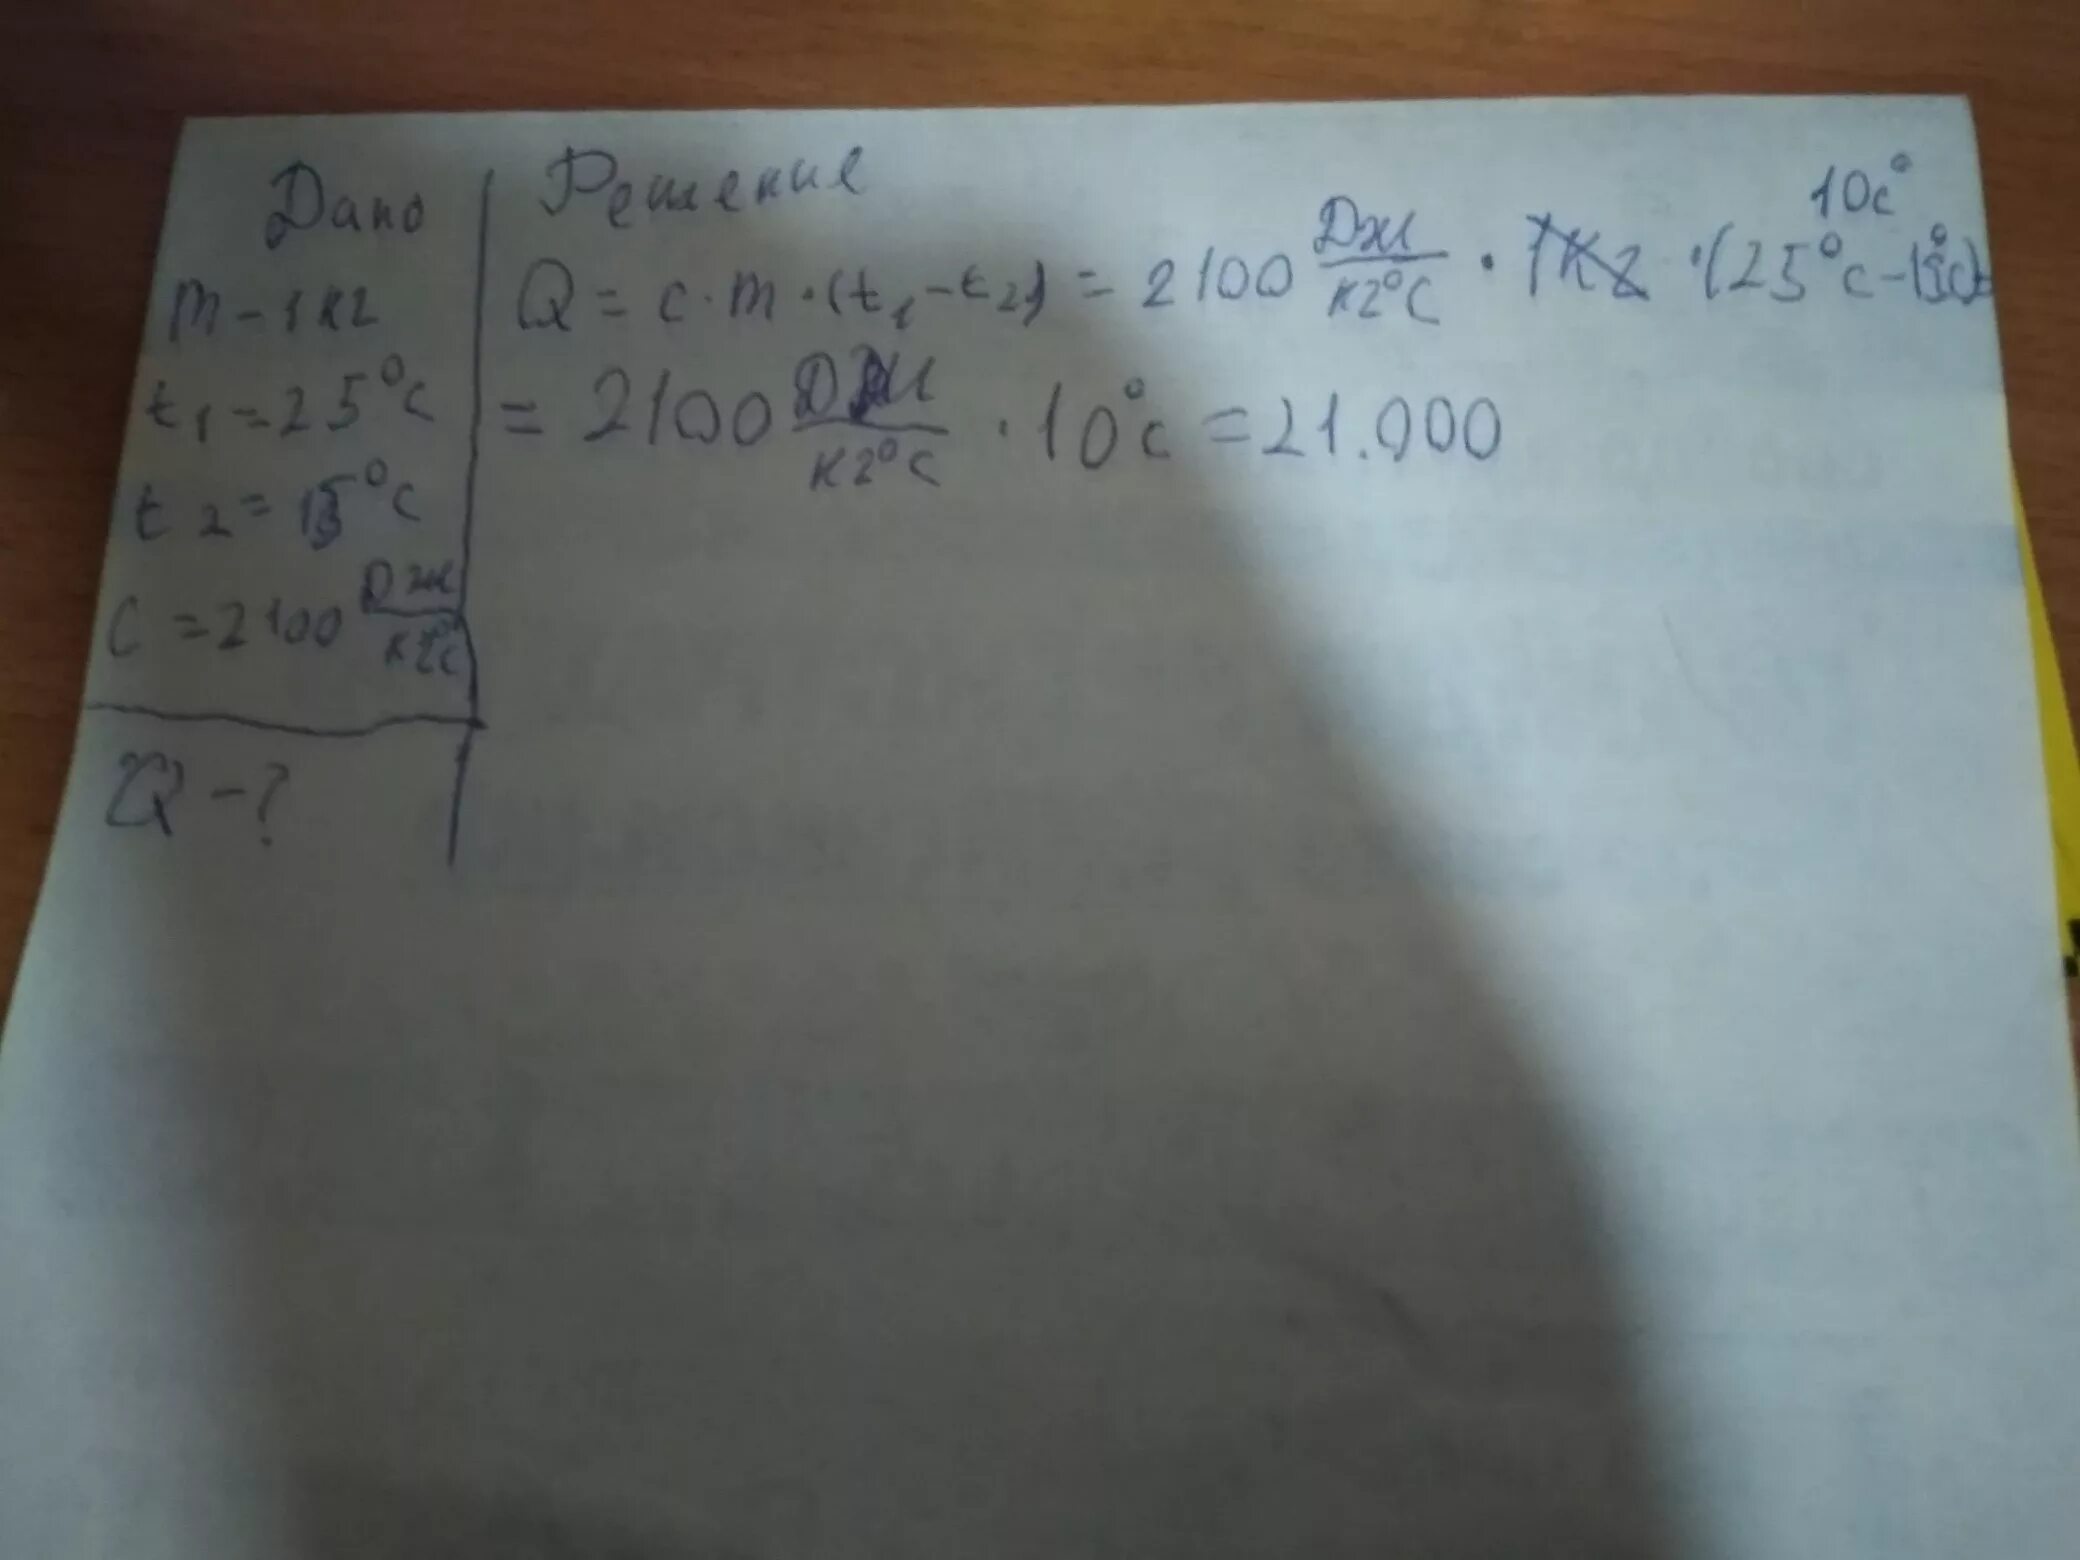 Дано
m - 1 кг
t₁ = 25°C
t₂ = 15°C
C = 2100 Дж/кг°C
Q - ?
Решение
10c°
Q = c · m · (t₁ - t₂) = 2100 Дж/кг°C · 1кг · (25°C - 15°C) =
= 2100 Дж/кг°C · 10°C = 21.000